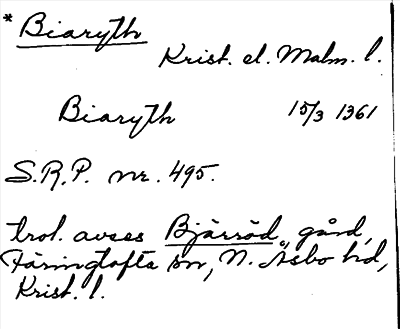 * Biaryth
Krist. el. Malm. l.
Biaryth 15/3 1361
S.R.P. nr. 495.
trol. avses Bjärröd, gård,
Färingtofta sn, N. Åsbo hd,
Krist. l.